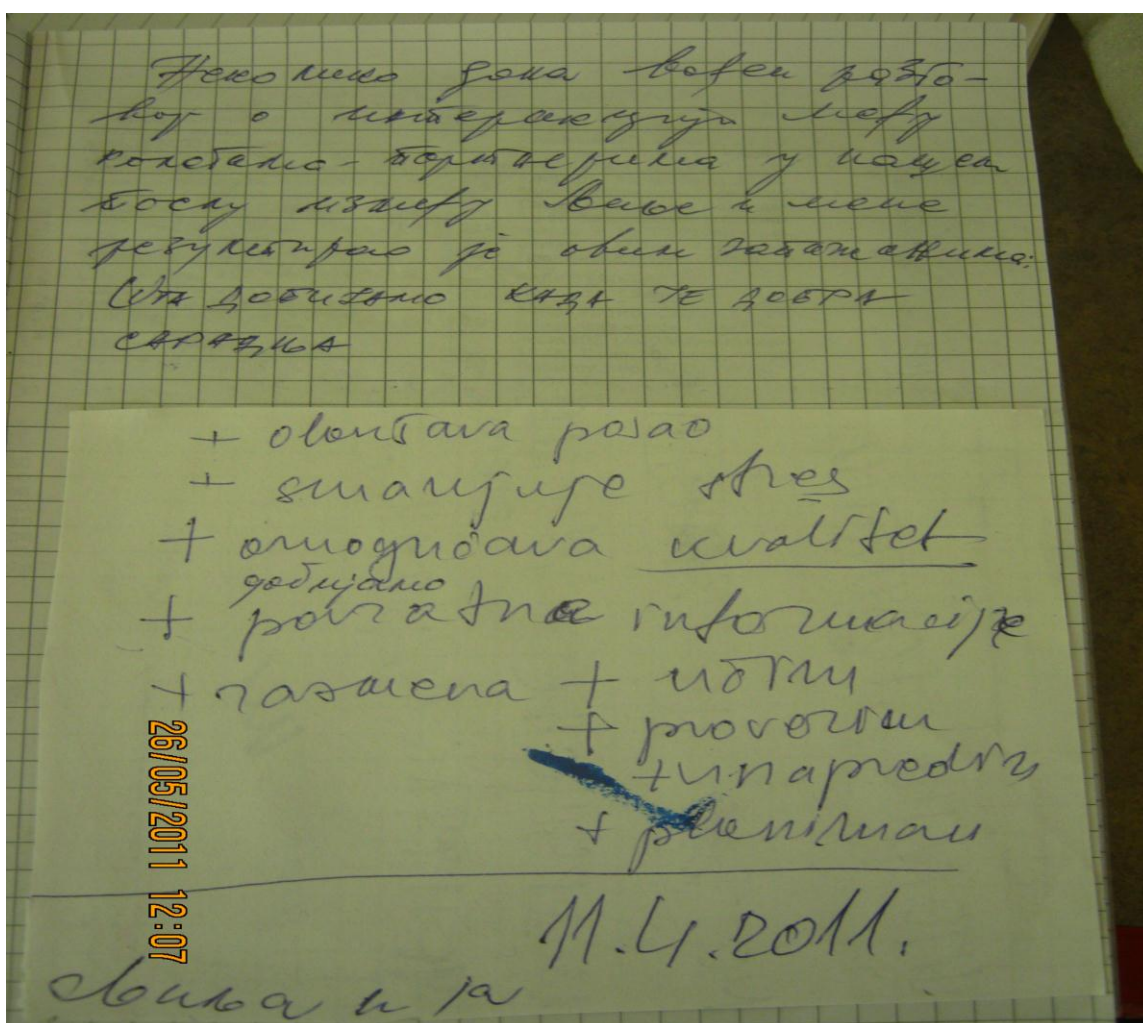 Неколико дана вођен разго-
вор о интеракцији међу
колегама - партнерима у нашем
послу између Весне и мене
резултирао је овим запажањима:
ШТА ДОБИЈАМО КАДА ЈЕ ДОБРА
САРАДЊА
+ olakšava posao
+ smanjuje stres
+ omogućava kvalitet
добијамо
+ povratne informacije
+ razmena + učim
+ proverim
+ unapredim
+ planiram
11.4.2011.
и ја
26/05/2011 12:07